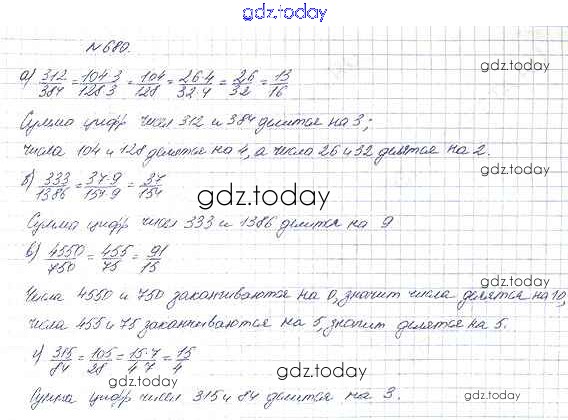 gdz.today
№680.
а) 312/384 = 104·3/128·3 = 104/128 = 26·4/32·4 = 26/32 = 13/16
gdz.today
Сумма цифр чисел 312 и 384 делится на 3;
числа 104 и 128 делятся на 4, а числа 26 и 32 делятся на 2.
б) 333/1386 = 37·9/154·9 = 37/154
gdz.today
Сумма цифр чисел 333 и 1386 делится на 9
в) 4550/750 = 455/75 = 91/15
gdz.today
Числа 4550 и 750 заканчиваются на 0, значит числа делятся на 10,
числа 455 и 75 заканчиваются на 5, значит делятся на 5.
г) 315/84 = 105/28 = 15·7/4·7 = 15/4
gdz.today
Сумма цифр чисел 315 и 84 делится на 3.
gdz.today